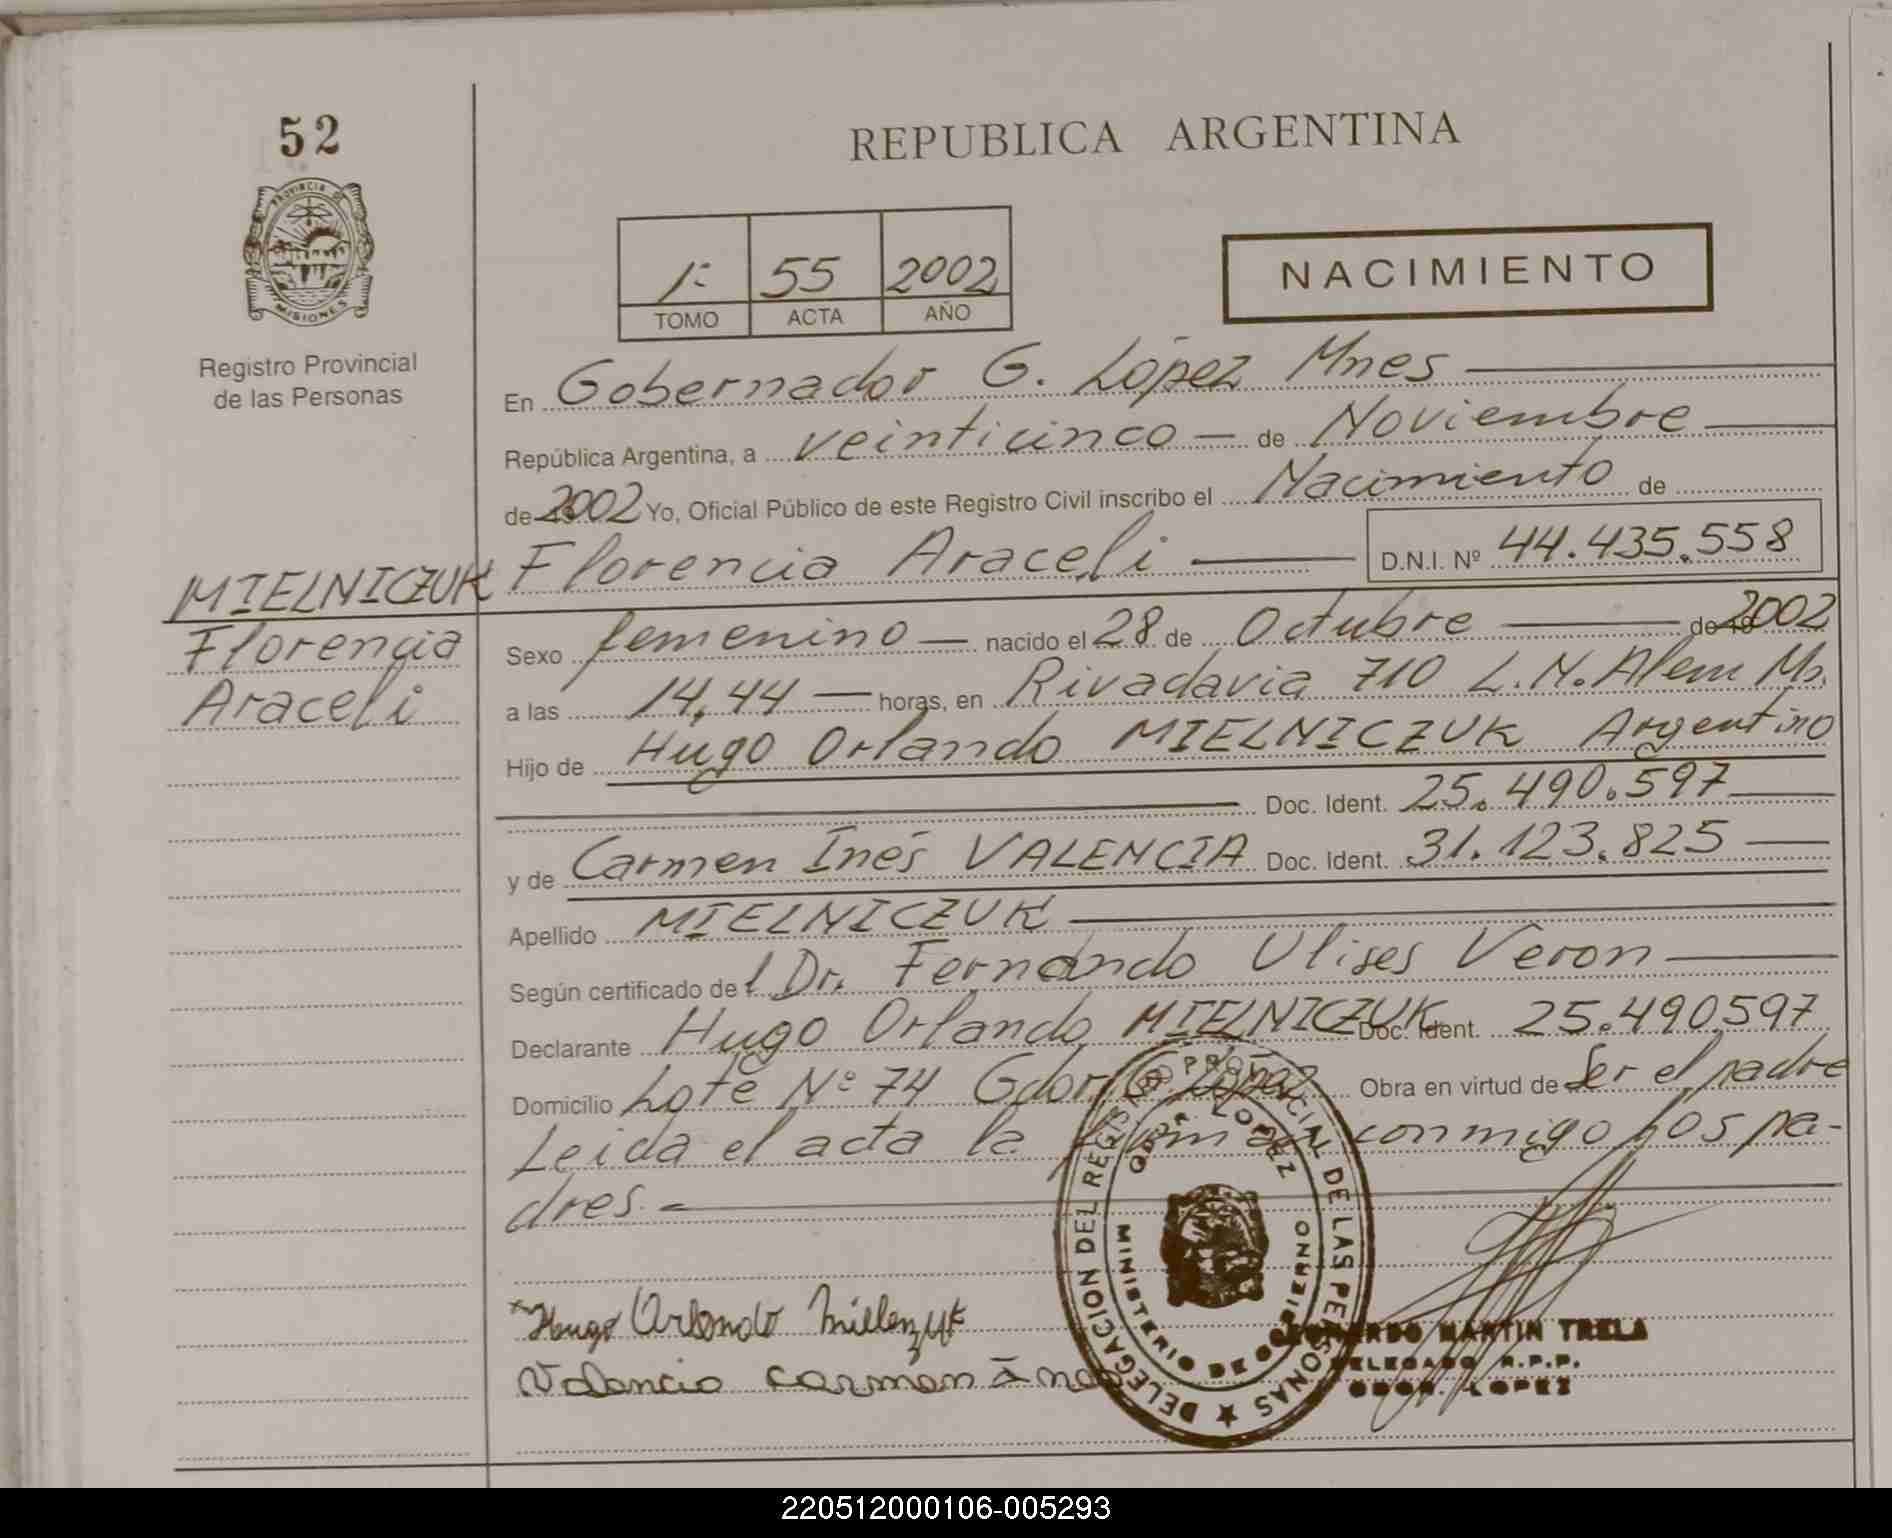 52
REPUBLICA ARGENTINA
PROVINCIA DE
MISIONES
Registro Provincial
de las Personas
1º 55 2002
TOMO ACTA AÑO
NACIMIENTO
En Gobernador G. López Mnes
República Argentina, a veinticinco de Noviembre
de 2002 Yo, Oficial Público de este Registro Civil inscribo el Nacimiento de
MIELNICZUK Florencia Araceli D.N.I. Nº 44.435.558
Florencia
Araceli
Sexo femenino nacido el 28 de Octubre de 19 2002
a las 14,44 horas, en Rivadavia 710 L.N.Alem Ms.
Hijo de Hugo Orlando MIELNICZUK Argentino
Doc. Ident. 25.490.597
y de Carmen Inés VALENCIA Doc. Ident. 31.123.825
Apellido MIELNICZUK
Según certificado del Dr. Fernando Ulises Veron
Declarante Hugo Orlando MIELNICZUK Doc. Ident. 25.490.597
Domicilio Lote Nº 74 Gdor. G. López Obra en virtud de Ser el padre
Leida el acta la firman conmigo los pa-
dres.
Hugo Orlando
Valencia Carmen Ines
DELEGACION DEL REGISTRO PROVINCIAL DE LAS PERSONAS
GDOR. LOPEZ
MINISTERIO DE GOBIERNO
MARTIN TRELA
DELEGADO R.P.P.
GDOR. LOPEZ
220512000106-005293